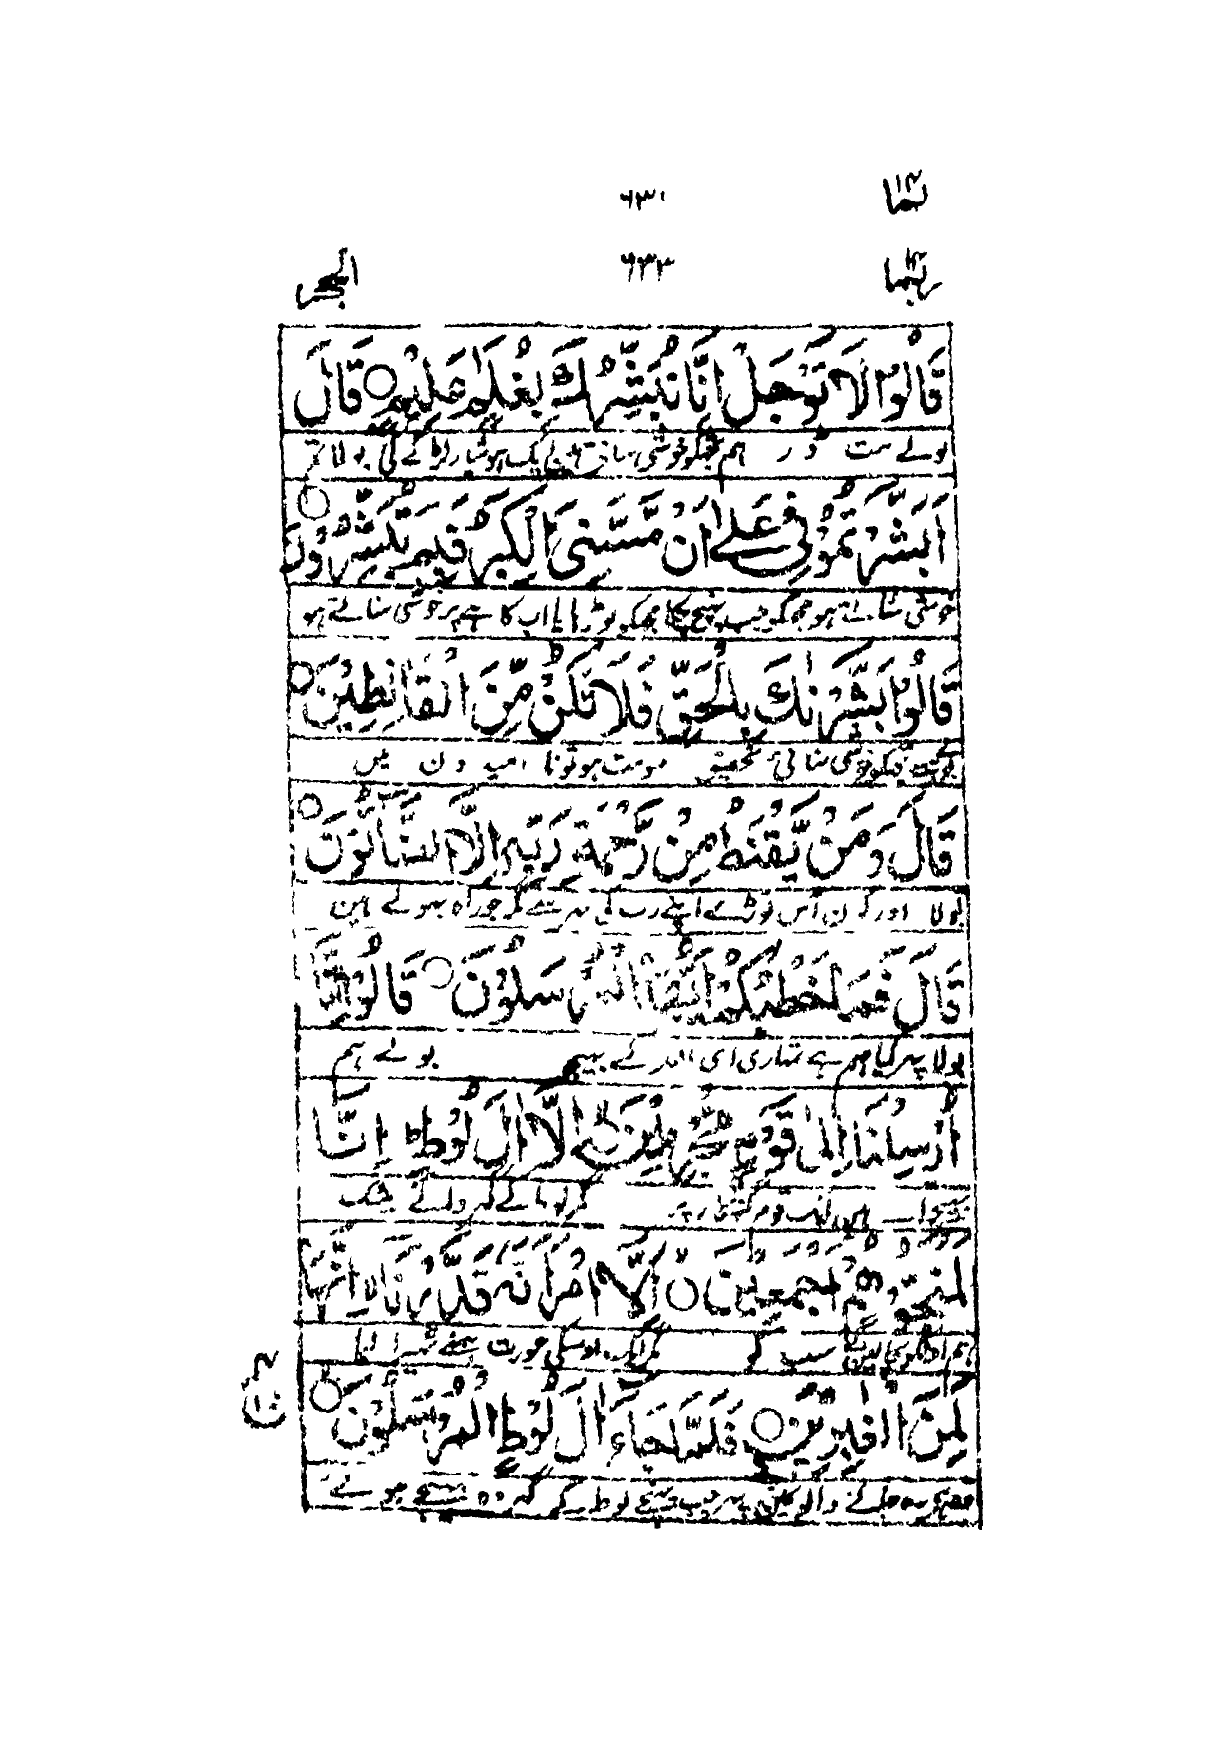 ربما ۱۴
۶۳۰
ربما ۱۴
۶۳۳
الحجر
قَالُوْا لَا تَوْجَلْ اِنَّا نُبَشِّرُكَ بِغُلٰمٍ عَلِيْمٍ ○ قَالَ
بولے مت ڈر ہم تجھکو خوشی سناتے ہیں ایک ہوشیار لڑکے کی بولا تم
اَبَشَّرْتُمُوْنِيْ عَلٰى اَنْ مَّسَّنِيَ الْكِبَرُ فَبِمَ تُبَشِّرُوْنَ ○
خوشی سناتے ہو مجھکو جب پہنچ چکا مجھکو بوڑھاپا اب کاہے پر خوشی سناتے ہو
قَالُوْا بَشَّرْنٰكَ بِالْحَقِّ فَلَا تَكُنْ مِّنَ الْقَانِطِيْنَ ○
بولے ہمنے تجھکو خوشی سنائی تحقیق سو مت ہو تو نا امید ون میں
قَالَ وَمَنْ يَّقْنَطُ مِنْ رَّحْمَةِ رَبِّهٖ اِلَّا الضَّالُّوْنَ ○
بولا اور کون آس توڑے اپنے رب کی مہر سے مگر جو راہ بھولے ہین
قَالَ فَمَا خَطْبُكُمْ اَيُّهَا الْمُرْسَلُوْنَ ○ قَالُوْا اِنَّا
بولا پھر کیا مہم ہے تمہاری ای اللہ کے بھیجے بولے ہم
اُرْسِلْنَا اِلٰى قَوْمٍ مُّجْرِمِيْنَ اِلَّا اٰلَ لُوْطٍ اِنَّا
بھیجے آئے ہیں ایک قوم گنہگار پر مگر لوط کے گھر والے بیشک
لَمُنَجُّوْهُمْ اَجْمَعِيْنَ ○ اِلَّا امْرَاَتَهٗ قَدَّرْنَا اِنَّهَا
ہم انکو بچا لینگے سب کو مگر ایک اوسکی عورت ہمنے ٹھہرا لیا
لَمِنَ الْغٰبِرِيْنَ ○ فَلَمَّا جَاءَ اٰلَ لُوْطٍ الْمُرْسَلُوْنَ ○
وہ والون میں پھر جب پہنچے لوط کے گھر وہ بھیجے ہوئے